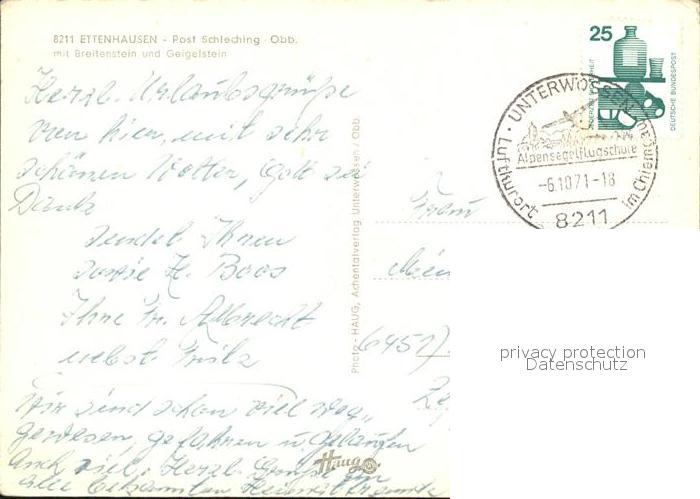 8211 ETTENHAUSEN - Post Schleching Obb.
mit Breitenstein und Geigelstein
Herzl. Urlaubsgrüße
von hier, mit sehr
schönem Wetter, Gott sei
Dank
sendet Ihnen
sowie H. Boos
Ihre Fr. Albrecht
nebst Fritz
Wir sind schon viel weg
gewesen, gefahren u. gelaufen
Auch viel. Herzl. Grüße an
alle Bekannten
Photo - HAUG, Achentalverlag Unterwössen / Obb.
Haug
25
DEUTSCHE BUNDESPOST
UNTERWÖSSEN
Luftkurort
im Chiemgau
Alpensegelflugschule
-6.10.71-18
8211
Frau
6451)
privacy protection
Datenschutz